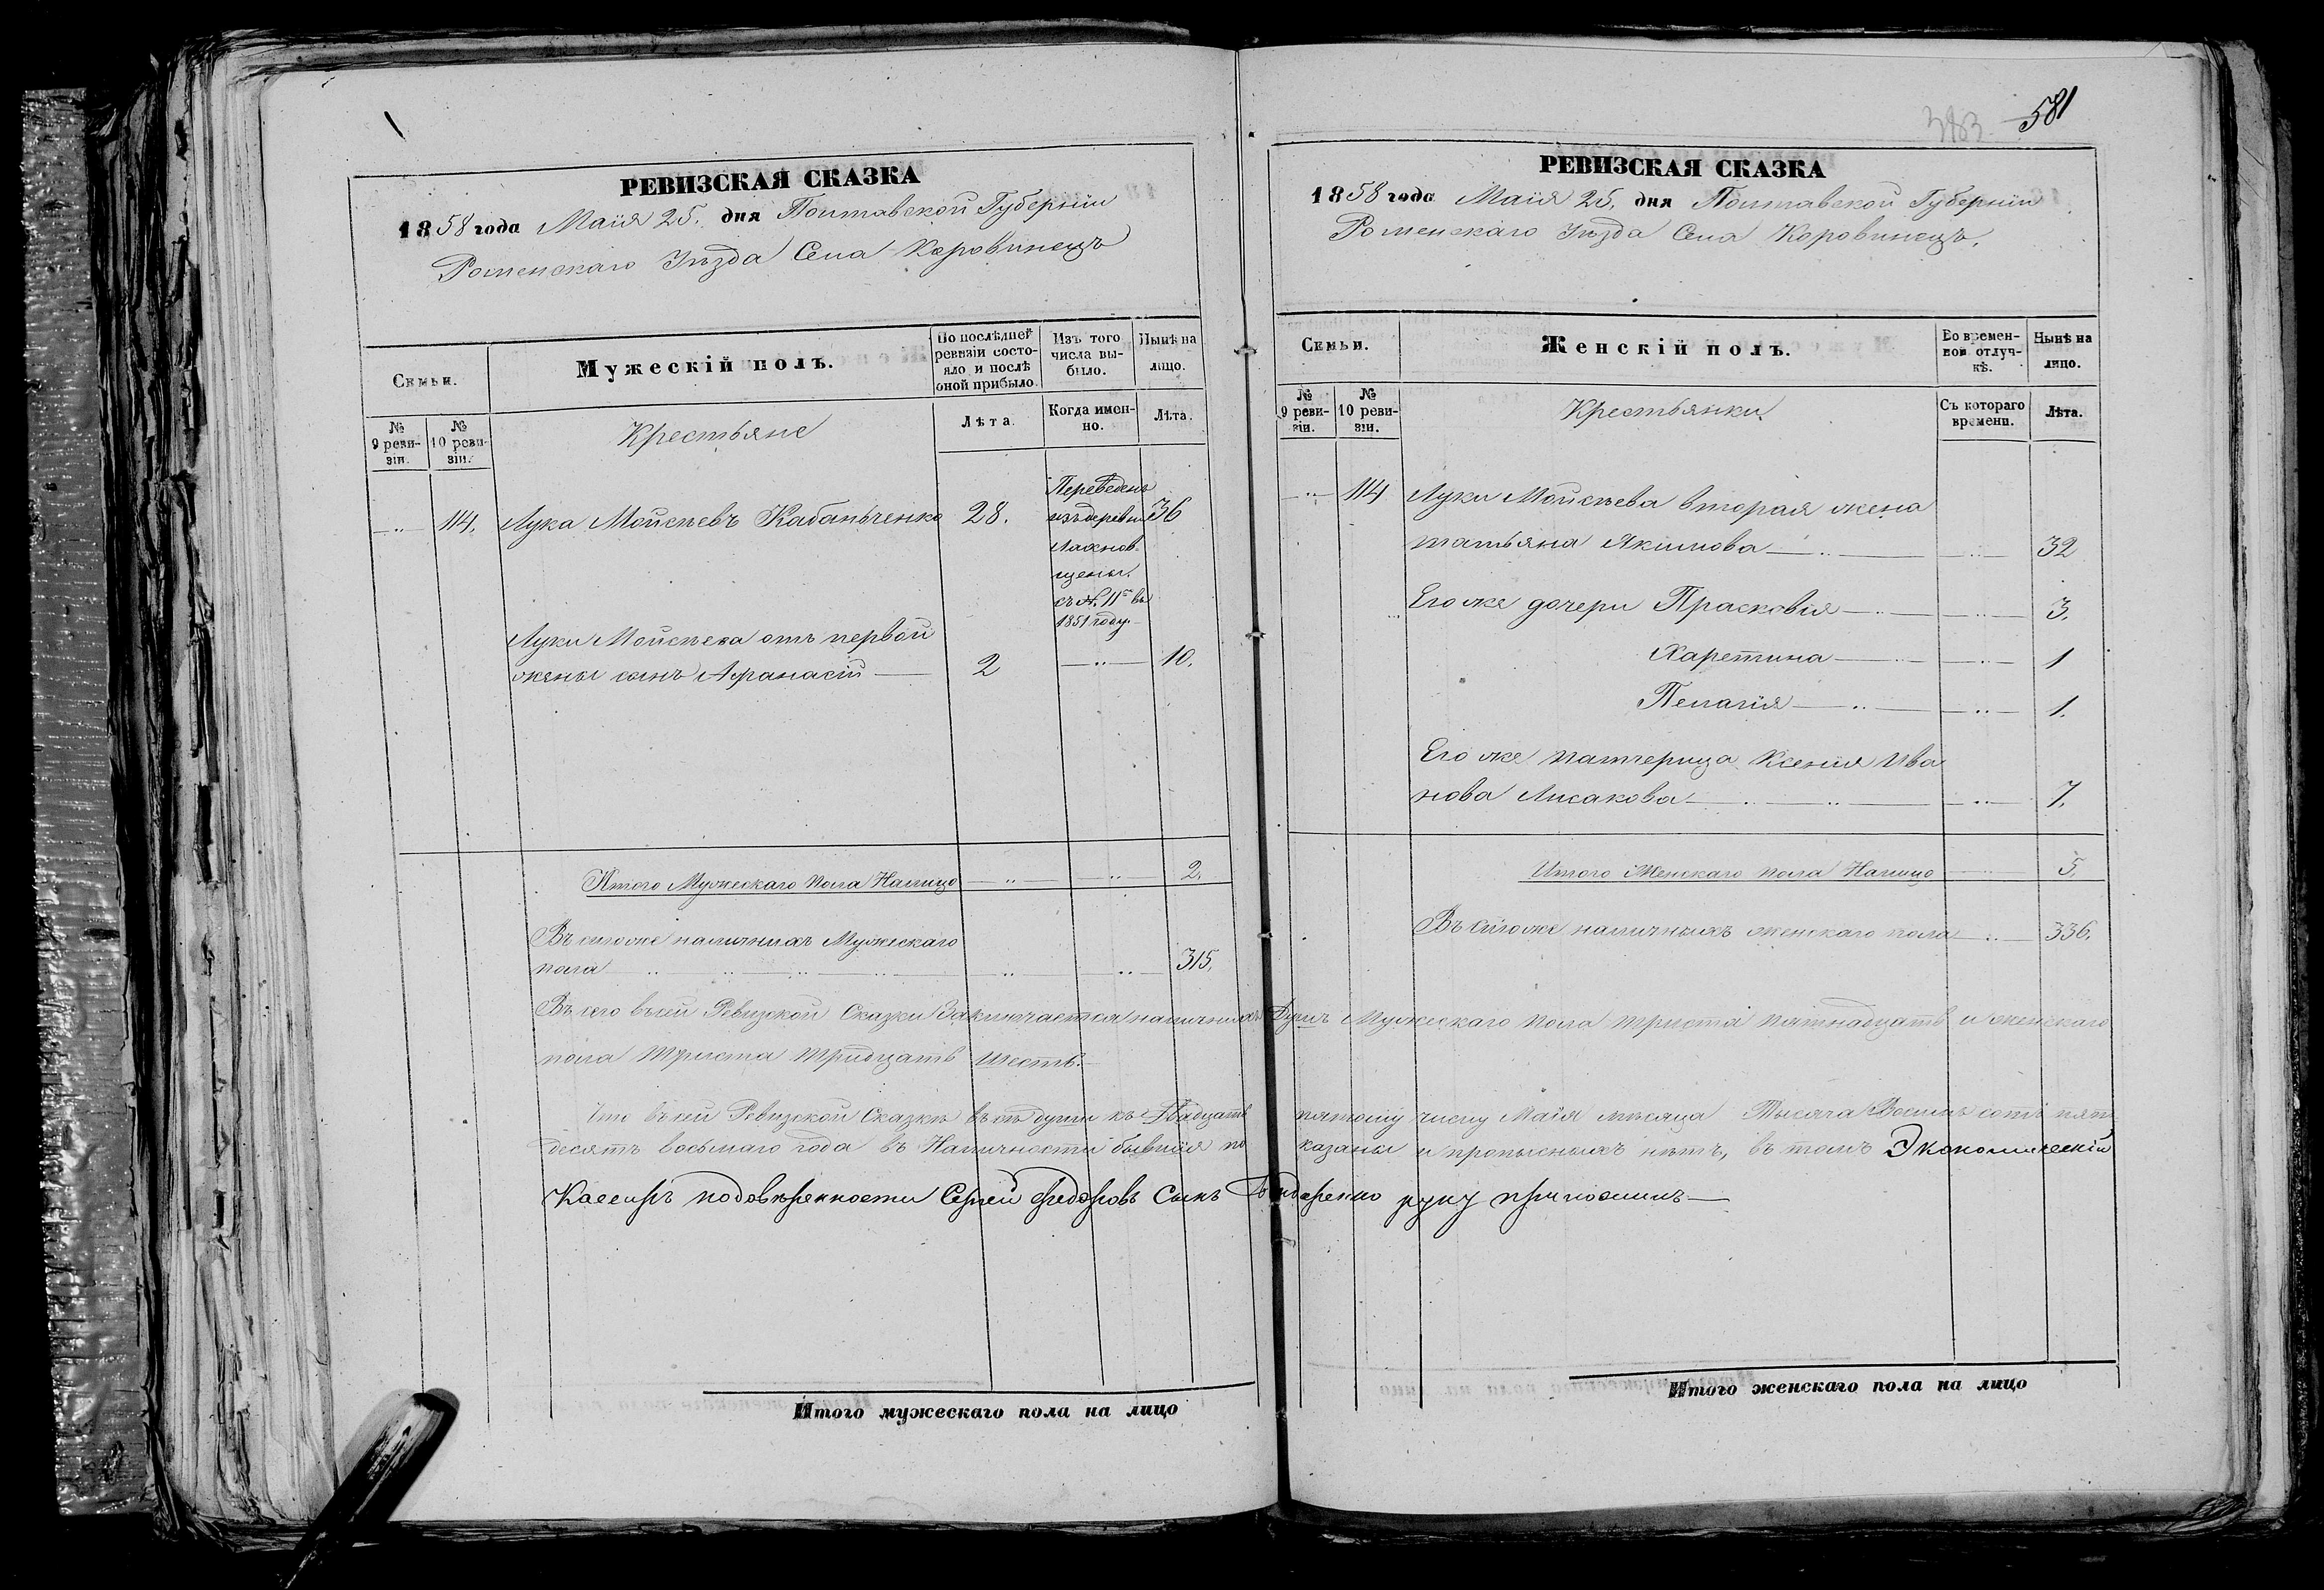 РЕВИЗСКАЯ СКАЗКА
1858 года Маія 25. дня Полтавской Губерніи
Роменскаго Уѣзда Села Коровинецъ
Семьи.
Мужескій полъ.
По послѣдней ревизіи состояло и послѣ оной прибыло
Изъ того числа выбыло.
Нынѣ на лицо.
№ 9 ревизіи.
№ 10 ревизіи.
Крестьяне
Лѣта.
Когда именно.
Лѣта.
114. Лука Мойсѣевъ Кабаньченко 28. 36
Переведенъ
изъ деревни
Лахнов-
щены.
съ №. 11го въ
1851 году.
Луки Мойсѣева отъ первой
жены сынъ Афанасій 2 10.
Итого Мужескаго пола Налицо 2.
Всего же наличныхъ Мужескаго
пола 315.
РЕВИЗСКАЯ СКАЗКА
1858 года Маія 25. дня Полтавской Губерніи
Роменскаго Уѣзда Села Коровинецъ.
383 581
Семьи.
Женскій полъ.
Во временной отлучкѣ.
Нынѣ на лицо.
№ 9 ревизіи.
№ 10 ревизіи.
Крестьянки
Съ котораго времени.
Лѣта.
114 Луки Мойсѣева вторая жена
татьяна Якимова 32
Его же дочери Прасковія 3.
Харетина 1
Пелагія 1.
Его же патчерица Ксенія Ива
нова Лисакова 7.
Итого Женскаго пола Налицо 5.
Всего же наличныхъ женскаго пола 336.
Всего въ сей Ревизской Сказки Заключается наличныхъ Душъ Мужескаго пола триста пятнадцать и женскаго
пола триста тридцать шесть.
Что въ сей Ревизской Сказке всѣ души къ Двадцать пятому числу Маія мѣсяца Тысяча Восемь сотъ пят
десятъ восьмаго года въ Наличности бывшія показаны и прописныхъ нѣтъ, въ томъ Экономическій
Кассиръ подовѣренности Сергей Федоровъ Сынъ руку приложилъ
Итого мужескаго пола на лицо
Итого женскаго пола на лицо